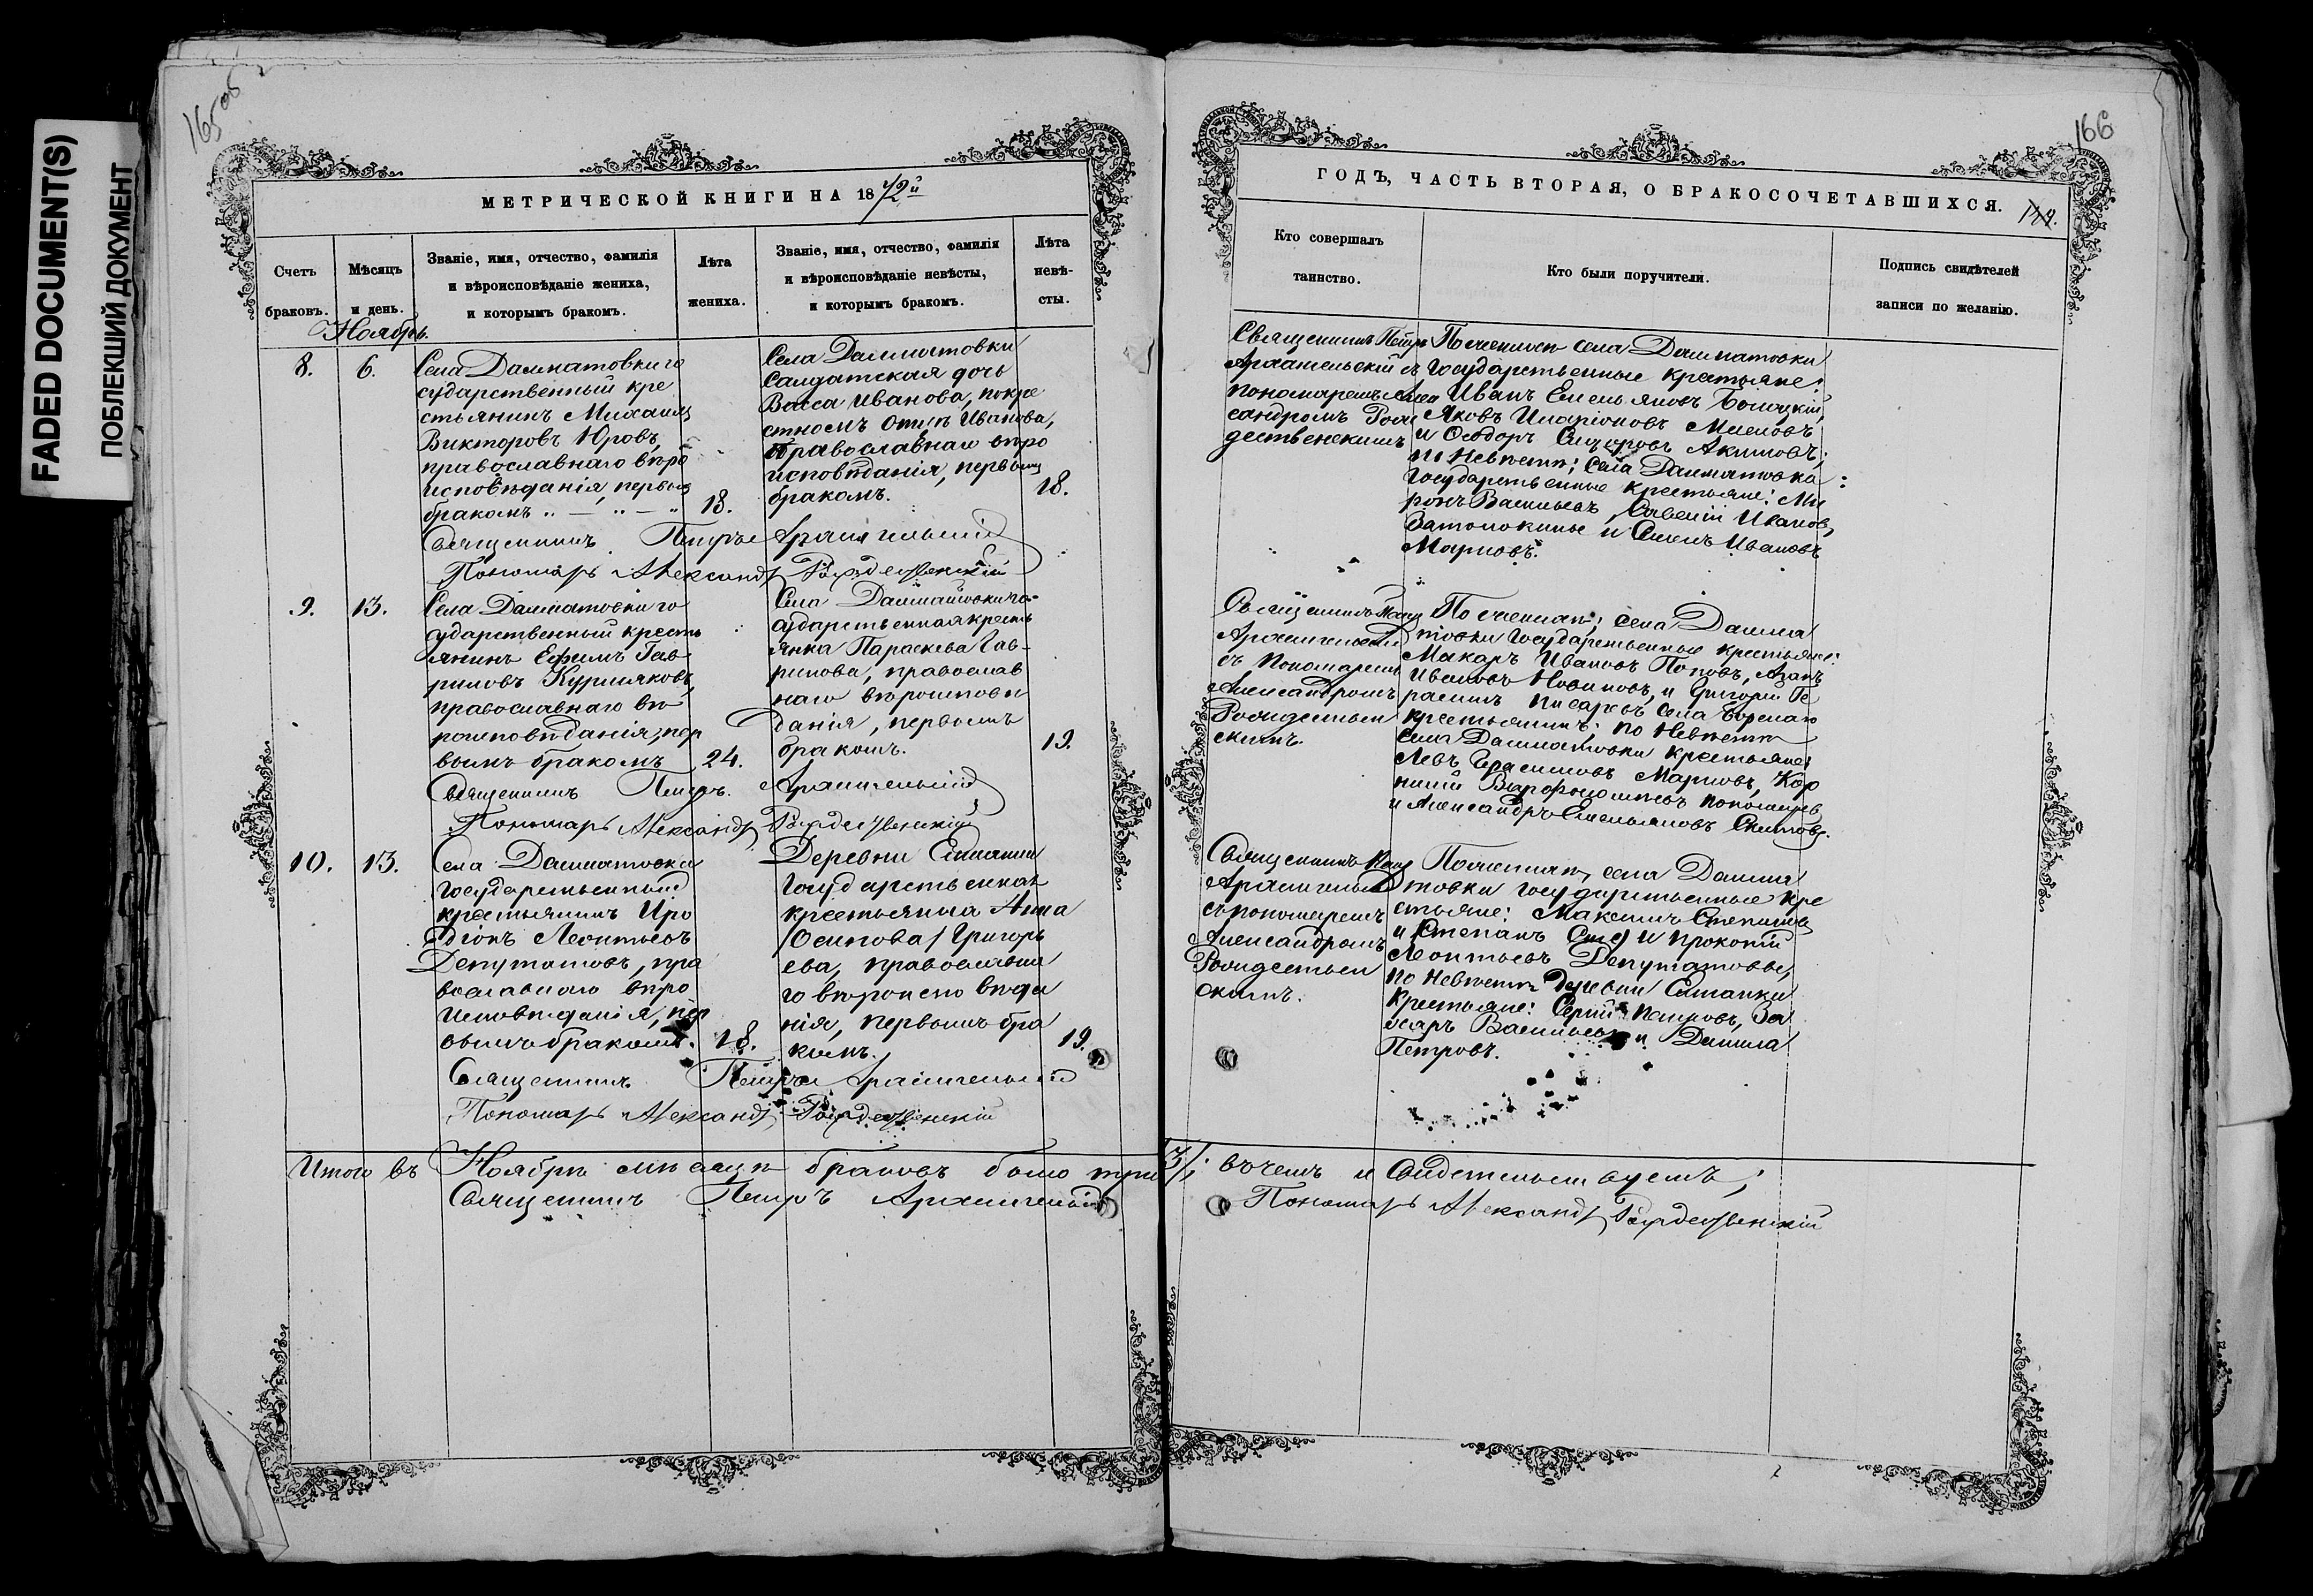 FADED DOCUMENT(S)
ПОБЛЕКШИЙ ДОКУМЕНТ
165об
МЕТРИЧЕСКОЙ КНИГИ НА 1872й
Счетъ
браковъ.
Мѣсяцъ
и день.
Званіе, имя, отчество, фамилія
и вѣроисповѣданіе жениха,
и которымъ бракомъ.
Лѣта
жениха.
Званіе, имя, отчество, фамилія
и вѣроисповѣданіе невѣсты,
и которымъ бракомъ.
Лѣта
невѣ-
сты.
Ноябрь.
8.
6.
Села Далматовки го
сударственный кре
стьянинъ Михаилъ
Викторовъ Юровъ,
православнаго вѣро
исповѣданія, первымъ
бракомъ
18.
Села Далматовки
Салдатская дочь
Васса Иванова, по кре
стномъ отцѣ Иванова,
Православнаго вѣро
исповѣданія, первымъ
бракомъ.
18.
Священникъ Петръ Архангельскій
Пономарь Александръ Рождественскій
9.
13.
Села Далматовки го
сударственный кресть
янинъ Ефимъ Гав
риловъ
православнаго вѣ
роисповѣданія, пер
вымъ бракомъ
24.
Села Далматовки го-
сударственная кресть
янка Параскева Гав-
рилова, православ
наго вѣроисповѣ
данія, первымъ
бракомъ.
19.
Священникъ Петръ. Архангельскій
Пономарь Александръ Рождественскій
10.
13.
Села Далматовки
государственный
крестьянинъ Иро
діонъ Леонтьевъ
Депутатовъ, пра
вославнаго вѣро
исповѣданія, пер
вымъ бракомъ.
18.
Деревни
государственная
крестьянка Анна
/Осипова/ Григорь
ева, православна
го вѣроисповѣда
нія, первымъ бра
комъ.
19.
Священникъ Петръ Архангельскій
Пономарь Александръ Рождественскій
Итого въ Ноябрѣ мѣсяцѣ браковъ было три
Священникъ Петръ Архангельскій
166
ГОДЪ, ЧАСТЬ ВТОРАЯ, О БРАКОСОЧЕТАВШИХСЯ.
Кто совершалъ
таинство.
Кто были поручители.
Подпись свидѣтелей
записи по желанію.
Священникъ Петръ
Архангельскій съ
пономаремъ Алек
сандромъ Рож
дественскимъ
По женихѣ села Далматовки
государственные крестьяне:
Иванъ Емельяновъ
Яковъ Иларіоновъ
и Ѳедоръ Сидоровъ Акимовъ;
по невѣстѣ; села Далматовки
государственные крестьяне: Ми
ронъ Васильевъ, Савелій Ивановъ
Затолокины и Семенъ Ивановъ
Марковъ.
Священникъ Петръ
Архангельскій
съ пономаремъ
Александромъ
Рождествен
скимъ.
По женихѣ; села Далма
товки государственные крестьяне:
Макаръ Ивановъ Поповъ,
Ивановъ Новиковъ, и Григорій Ге
расимъ Писаревъ села
крестьянинъ; по невѣстѣ
села Далматовки крестьяне:
Левъ Герасимовъ Марковъ, Кор
нилій
и Александръ Емельяновъ
Священникъ Петръ
Архангельскій
съ пономаремъ
Александромъ
Рождествен
скимъ.
По женихѣ, села Далма
товки государственные кре
стьяне: Максимъ Степановъ
и Степанъ и Прокопій
Леонтьевъ Депутатовы,
по невѣстѣ деревни
крестьяне: Сергій Петровъ, За
харъ Васильевъ и Данила
Петровъ.
/3/; въ чемъ и свидетельствуемъ;
Пономарь Александръ Рождественскій